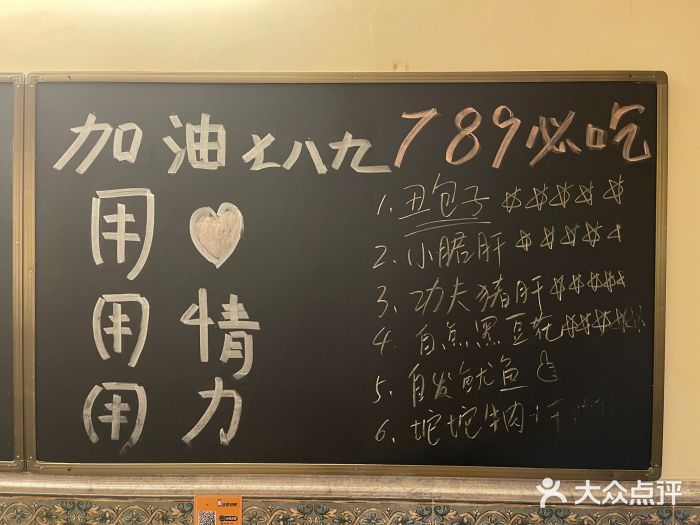 加油七八九
用
用情
用力
789必吃
1. 丑包子
2. 小腊肝
3. 功夫猪肝
4. 自点黑豆花
5. 自发鱿鱼
6. 坨坨牛肉
大众点评